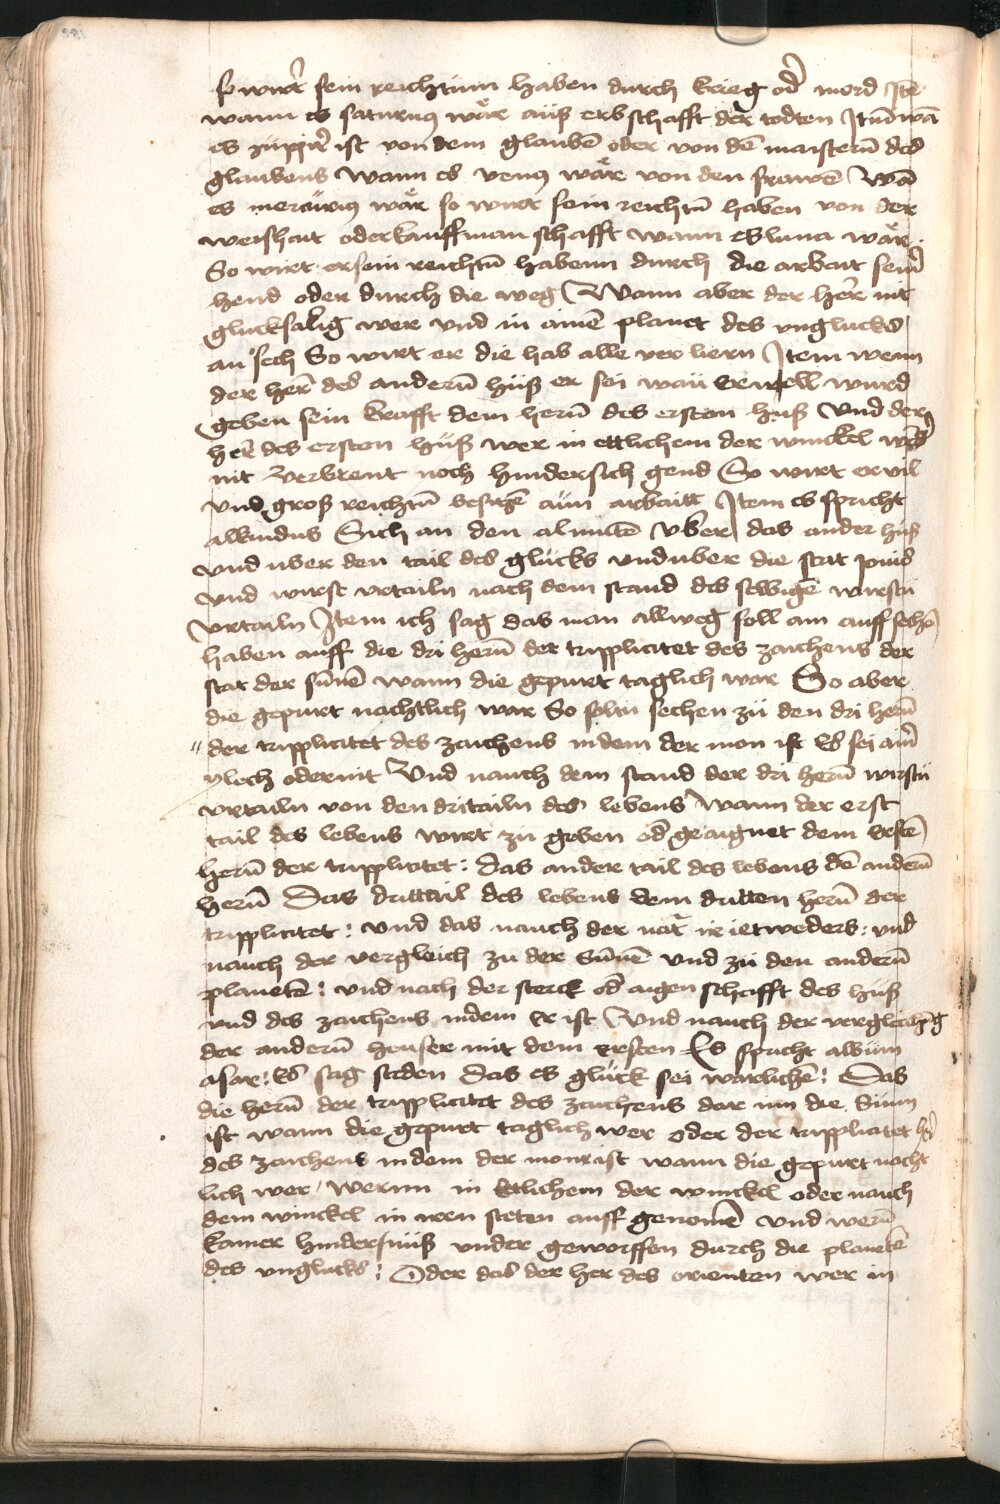 so wirt sein reichtum haben durch krieg od̄ mord Itē
wann es saturnus wär auß erbschafft der todten Itm̄ wā
es juppit̄ ist von dem glaubē oder von dē maisterū des
glaubens wann es venus wär von den frawē Wā
es mercurius wär so wirt sein reichtū haben von der
weishait oder kauffmanschafft wann es luna wär
So wirt er sein reichtū habenn durch die arbait sein̄
hend oder durch die weg Wann aber der her̄ nit
glücksalig wer vnd in ainē planet des vnglucks
an sech So wirt er die hab alle verliern Item wenn
der her̄ des anderū hüß er sei wāu er well wurd
geben sein krafft dem herū des ersten huß Vnd der
her̄ des ersten hüß wer in ettlichem der winckel
nit verbrent noch hindersich gend So wirt er vil
vnd groß reichtū besitzē aun arbaitt Item es spricht
alkindus Sich an den almutē vber das ander huß
vnd uber den tail des glücks vnd uber die stat jouis
vnd wirst vrtailn nach dem stand des selbigē wirstu
vrtailn Item ich sag das man allweg soll ain auff sechē
haben auff die dri herū der tripplicitet des zaichens der
stat der sunnē wann die gepurt taglich war So aber
die gepurt nachtlich war So soltu sechen zü den dri herū
der tripplicitet des zaichens in dem der mon ist Es sei
ylech oder nit Vnd nauch dem stand der dri herū wirstu
vrtailn von den dritailn des lebens wann der erst
tail des lebens wirt zu geben od̄ geaignet dem erstē
herū der tripplicitet : das ander tail des lebens dē anderū
herū Das drittail des lebens dem dritten herū der
tripplicitet : vnd das nauch der nat̄ ir ietweders : vnd
nauch der vergleich zu der sunnē vnd zü den anderū
planetē : vnd nach der sterck od̄ aigenschafft des huß
vnd des zaichens indem er ist Vnd nauch der vergleichūg
der anderū heuser mit dem ersten Es spricht album
asar : Es sag das es glück sei warlichē : Das
die herū der tripplicitet des zaichens dar inn die Sunn
ist wann die gepurt taglich wer oder der tripplicitet
des zaichens in dem der mon ist wann die gepurt nacht
lich wer / wernn in ettlichem der winckel oder nauch
dem winckel in iren steten auff genomē vnd werū
kainer hindernüß vnder geworffen durch die planetē
des vnglucks : Oder das der her des orienten wer in